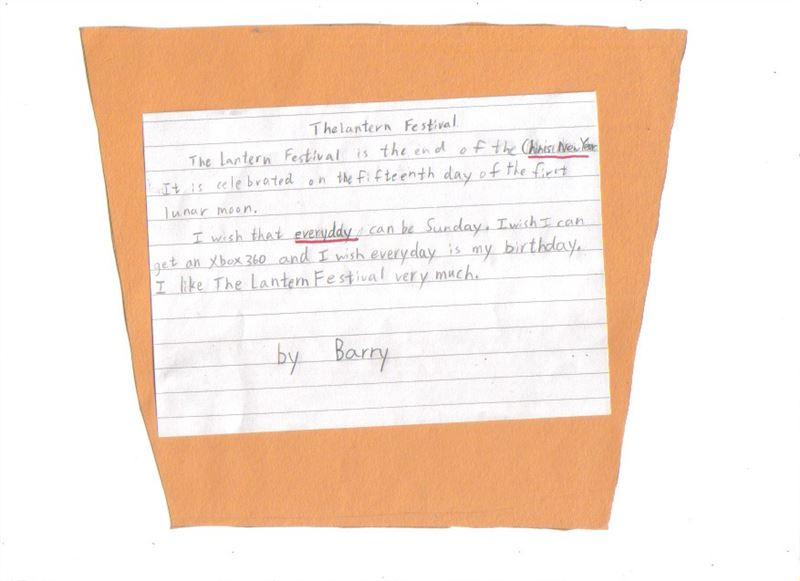 The lantern Festival
The Lantern Festival is the end of the Chinise New Year
It is celebrated on the fifteenth day of the first
lunar moon.
I wish that everyddy can be Sunday. I wish I can
get an Xbox 360 and I wish everyday is my birthday.
I like The Lantern Festival very much.
by Barry